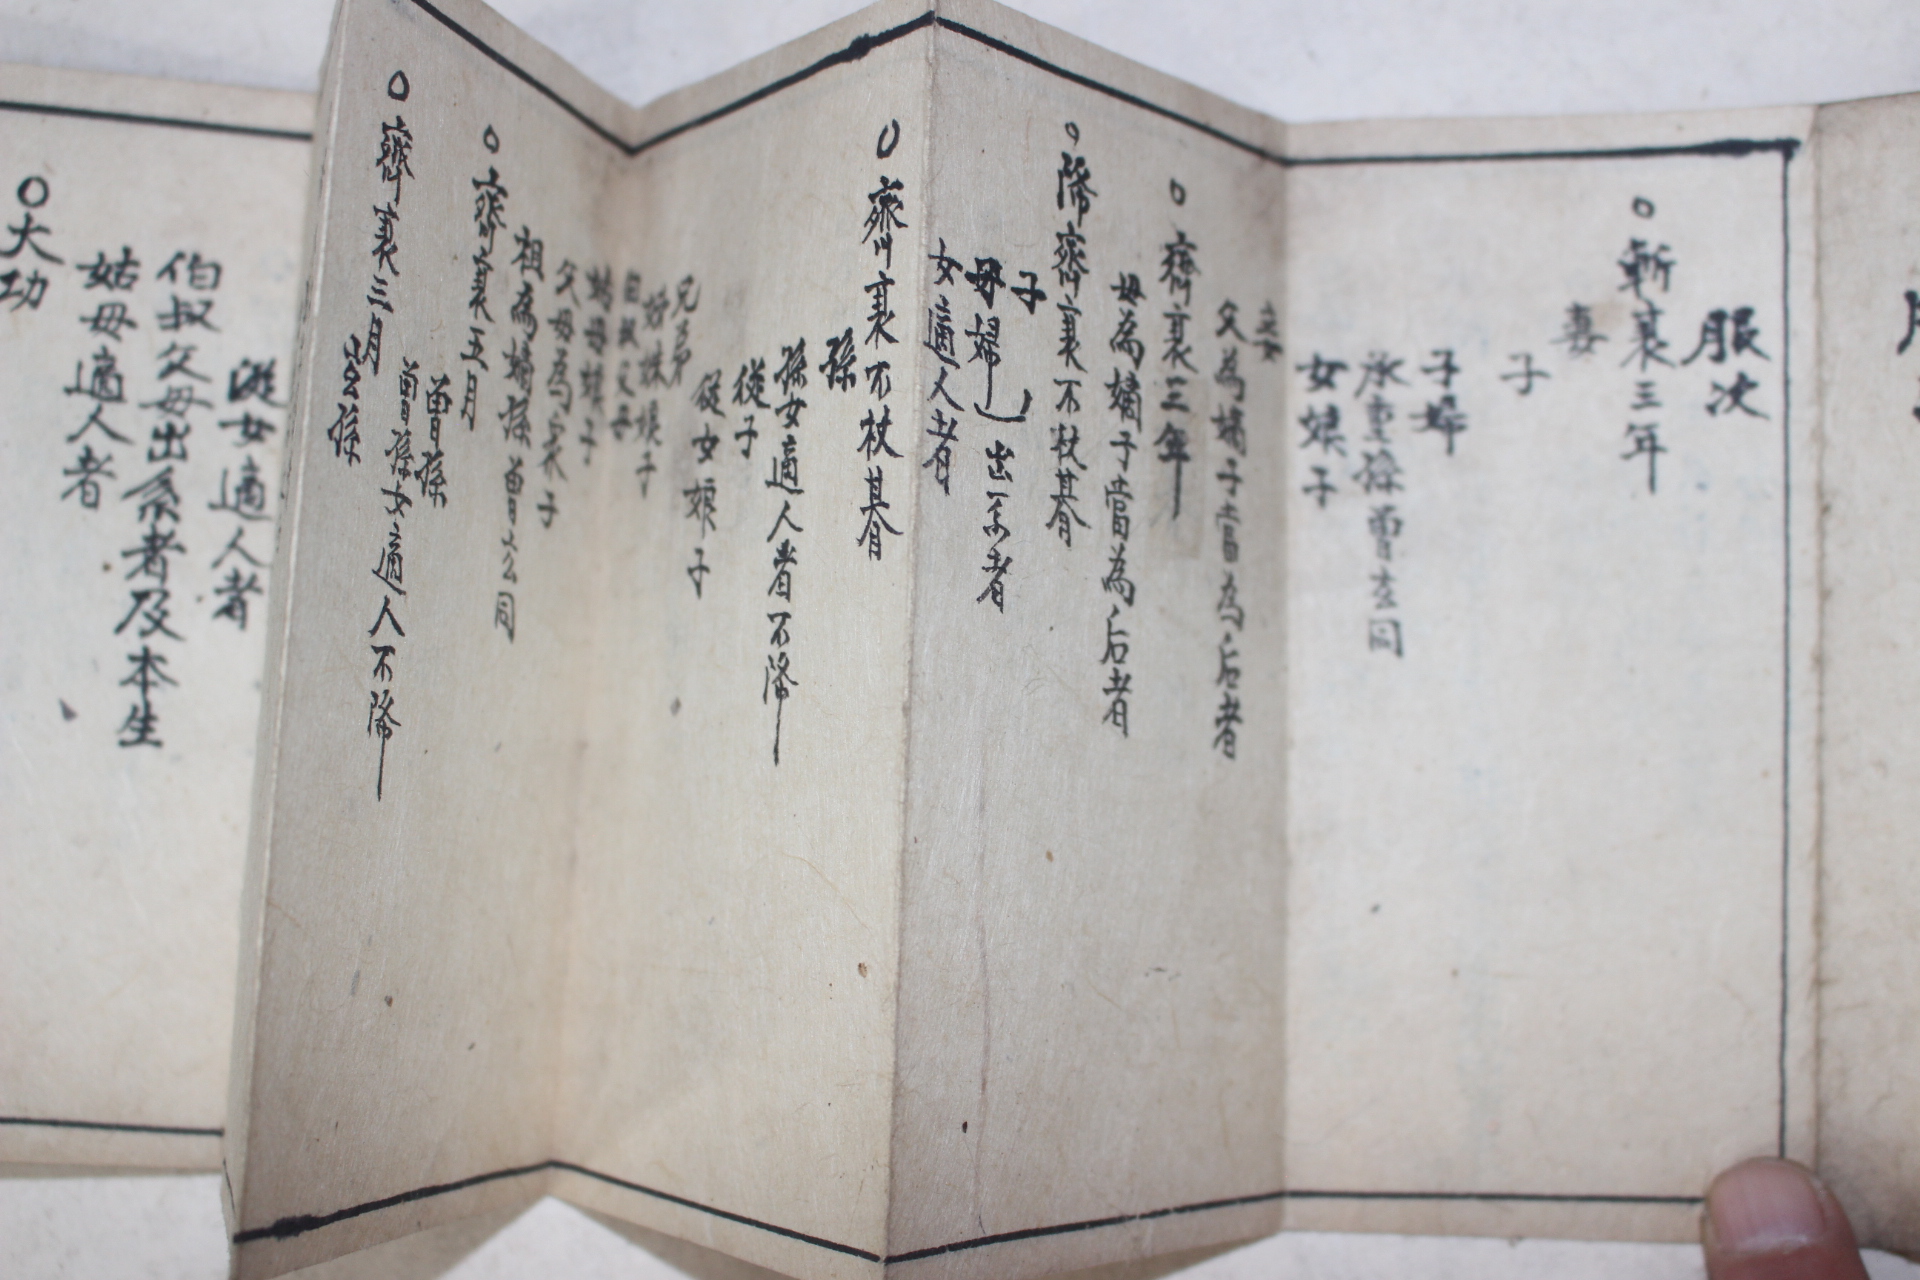 服次
○斬衰三年
妻
子
子婦
承重孫曾玄同
女娘子
妾
父為嫡子當為后者
○齊衰三年
母為嫡子當為后者
○降齊衰不杖朞
子
母婦 出系者
女適人者
○齊衰不杖朞
孫
孫女適人者不降
從子
從女娘子
兄弟
姊妹娘子
伯叔父母
姑母娘子
父母為衆子
祖為嫡孫曾玄同
○齊衰五月
曾孫
曾孫女適人不降
○齊衰三月
玄孫
從女適人者
伯叔父母出系者及本生
姑母適人者
○大功